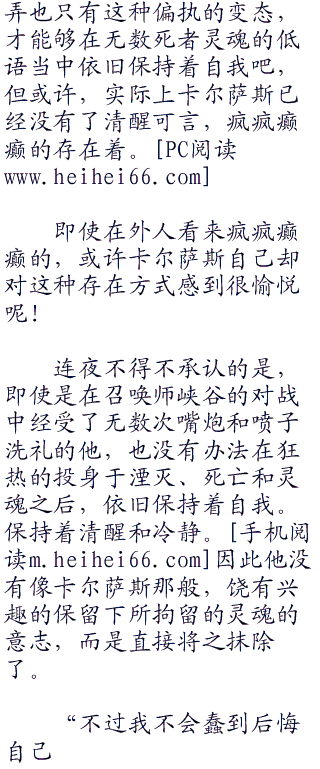 弄也只有这种偏执的变态，
才能够在无数死者灵魂的低
语当中依旧保持着自我吧，
但或许，实际上卡尔萨斯已
经没有了清醒可言，疯疯癫
癫的存在着。[PC阅读
www.heihei66.com]
即使在外人看来疯疯癫
癫的，或许卡尔萨斯自己却
对这种存在方式感到很愉悦
呢！
连夜不得不承认的是，
即使是在召唤师峡谷的对战
中经受了无数次嘴炮和喷子
洗礼的他，也没有办法在狂
热的投身于湮灭、死亡和灵
魂之后，依旧保持着自我。
保持着清醒和冷静。[手机阅
读m.heihei66.com]因此他没
有像卡尔萨斯那般，饶有兴
趣的保留下所拘留的灵魂的
意志，而是直接将之抹除
了。
“不过我不会蠢到后悔
自己